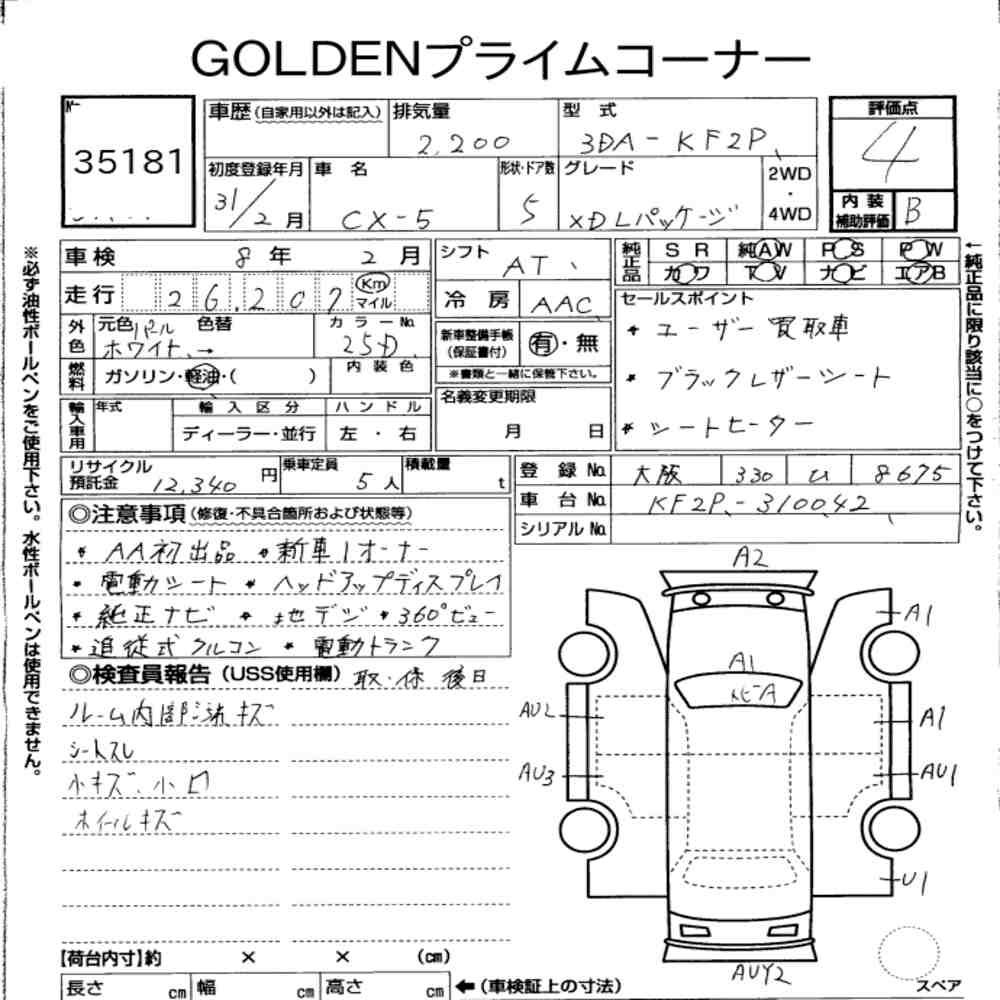 GOLDENプライムコーナー
35181
車歴(自家用以外は記入) 排気量 型 式 評価点
2,200 3DA-KF2P 4
初度登録年月 車 名 形状・ドア数 グレード 2WD・4WD
31/2月 CX-5 5 XDLパッケージ
内装補助評価 B
車検 8年 2月
シフト AT
純正品 SR 純AW PS PW
カワ TV ナビ エアB
走行 26,207 Km マイル
冷房 AAC
セールスポイント
* ユーザー買取車
* ブラックレザーシート
* シートヒーター
外色 元色 パール ホワイト 色替 → カラーNo. 25D
新車整備手帳(保証書付) 有・無
※書類と一緒に保管下さい。
燃料 ガソリン・軽油・( ) 内装色
名義変更期限 月 日
輸入車用 年式 輸入区分 ハンドル
ディーラー・並行 左・右
リサイクル預託金 12,340円 乗車定員 5人 積載量 t
登録No. 大阪 330 ひ 8675
車台No. KF2P-310042
シリアルNo.
◎注意事項(修復・不具合箇所および状態等)
* AA初出品 * 新車1オーナー
* 電動シート * ヘッドアップディスプレイ
* 純正ナビ * 地デジ * 360°ビュー
* 追従式クルコン * 電動トランク
◎検査員報告(USS使用欄) 取・保 後日
ルーム内部 キズ
シートスレ
小キズ、小凹
ホイールキズ
A2
A1
A1
A
AU2
A1
AU3
AU1
U1
AUY2
【荷台内寸】約 × × (cm)
長さ cm 幅 cm 高さ cm ←(車検証上の寸法)
スペア
※必ず油性ボールペンをご使用下さい。水性ボールペンは使用できません。
←純正品に限り該当に○をつけて下さい。